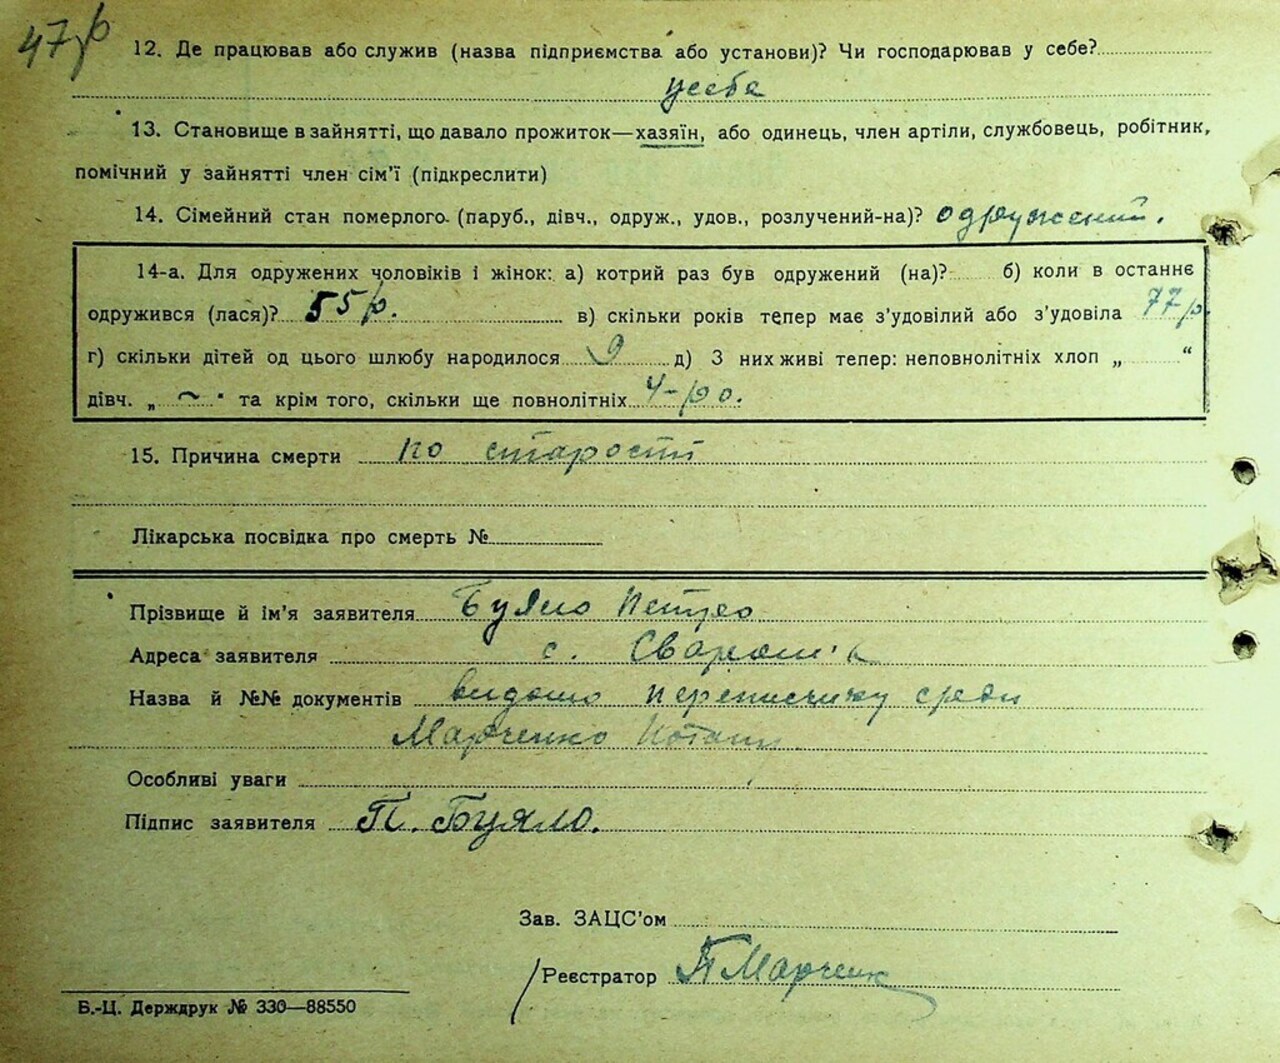 47 р
12. Де працював або служив (назва підприємства або установи)? Чи господарював у себе?
усебе
13. Становище в зайнятті, що давало прожиток—хазяїн, або одинець, член артіли, службовець, робітник,
помічний у зайнятті член сім'ї (підкреслити)
14. Сімейний стан померлого (паруб., дівч., одруж., удов., розлучений-на)? одружений.
14-а. Для одружених чоловіків і жінок: а) котрий раз був одружений (на)? б) коли в останнє
одружився (лася)? 55 р. в) скільки років тепер має з'удовілий або з'удовіла 77 р.
г) скільки дітей од цього шлюбу народилося 9 д) З них живі тепер: неповнолітніх хлоп „ “
дівч. „ ~ " та крім того, скільки ще повнолітніх 4-ро.
15. Причина смерти по старости
Лікарська посвідка про смерть №
Прізвище й ім'я заявителя Буяло Петро
Адреса заявителя с.
Назва й №№ документів видано
Марченко Потапу
Особливі уваги
Підпис заявителя П. Буяло.
Зав. ЗАЦС'ом
Реєстратор П Марченк
Б.-Ц. Держдрук № 330—88550